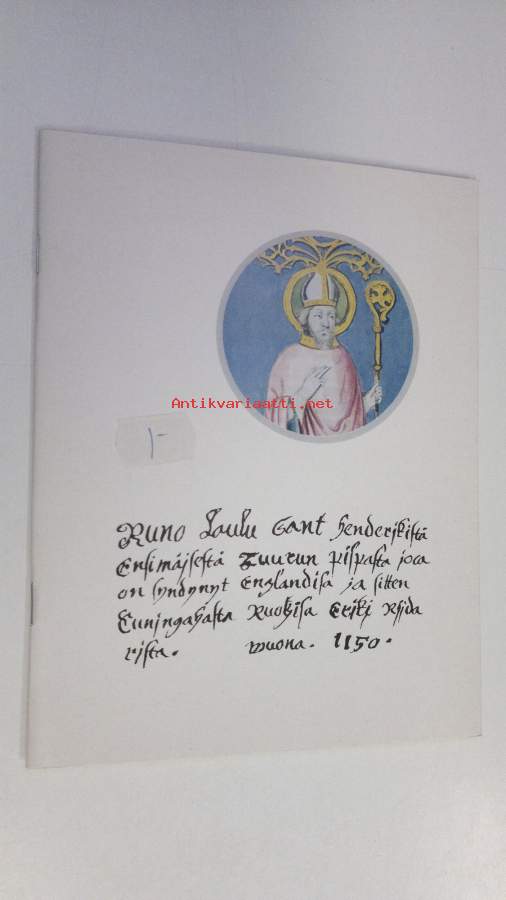 Antikvariaatti.net
1-
Runo Laulu Sant henderikistä
Ensimäisestä Tuurun pispasta joca
on syndynyt Englandisa ja sitten
Cuningahasta Ruotzisa Eriki Rijda
rista. wuona. 1150.